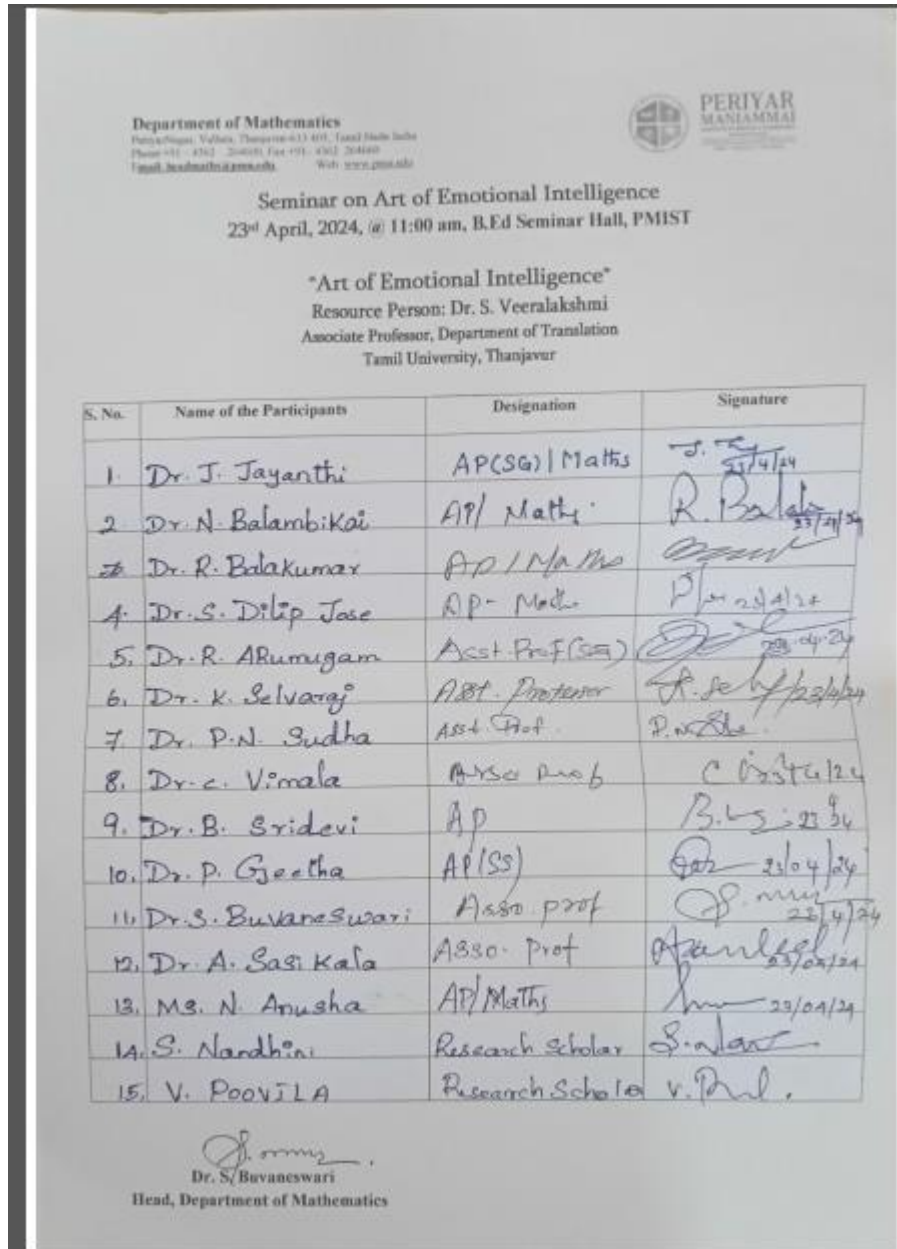 Department of Mathematics
Periyar Nagar, Vallam, Thanjavur-613 403, Tamil Nadu India
Phone +91 - 4362 Fax +91 - 4362
Email: headmaths@pmu.edu Web: www.pmu.edu
PERIYAR
MANIAMMAI
Seminar on Art of Emotional Intelligence
23rd April, 2024, @ 11:00 am, B.Ed Seminar Hall, PMIST
"Art of Emotional Intelligence"
Resource Person: Dr. S. Veeralakshmi
Associate Professor, Department of Translation
Tamil University, Thanjavur
S. No. Name of the Participants Designation Signature
1. Dr. J. Jayanthi AP(SG) | Maths 23/4/24
2 Dr. N. Balambikai AP/ Maths. R. 23/4/24
Dr. R. Balakumar AP / Maths
4. Dr. S. Dilip Jose AP - 23/4/24
5. Dr. R. ARumugam Asst. Prof (SG) 23-04-24
6. Dr. K. Selvaraj Asst. Professor 23/4/24
7. Dr. P.N. Sudha Asst. Prof. P.N.
8. Dr. C. Vimala Prof C
9. Dr. B. Sridevi AP B.
10. Dr. P. Geetha AP(SS) 23/04/24
11. Dr. S. Buvaneswari Asso. prof 23/4/24
12. Dr. A. Sasi Kala Asso. Prof 23/04/24
13. Ms. N. Anusha AP/Maths 23/04/24
14. S. Nandhini Research Scholar S.
15. V. POOVILA Research Schola V.
Dr. S. Buvaneswari
Head, Department of Mathematics